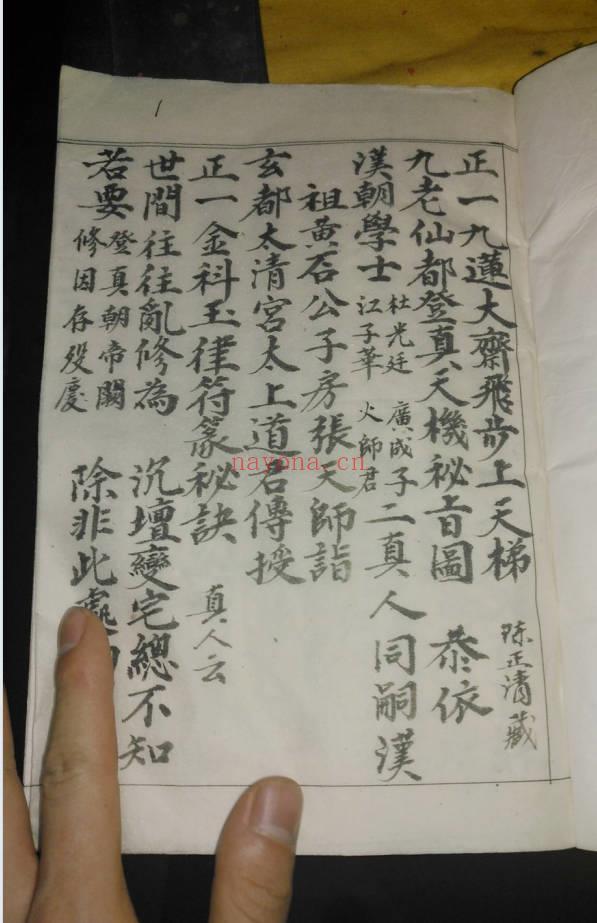 1
正一九蓮大齋飛步上天梯
陈正清藏
九老仙都登真天機秘旨圖 恭依
漢朝學士 杜光廷 廣成子 二真人同嗣漢
江子華 火師君
祖黃石公子房張天師詣
玄都太清宮太上道君傳授
正一金科玉律符篆秘訣 真人云
世間往往亂修為 沉壇變宅總不知
若要 登真朝帝闕 除非此處
修因存殁慶
nayona.cn